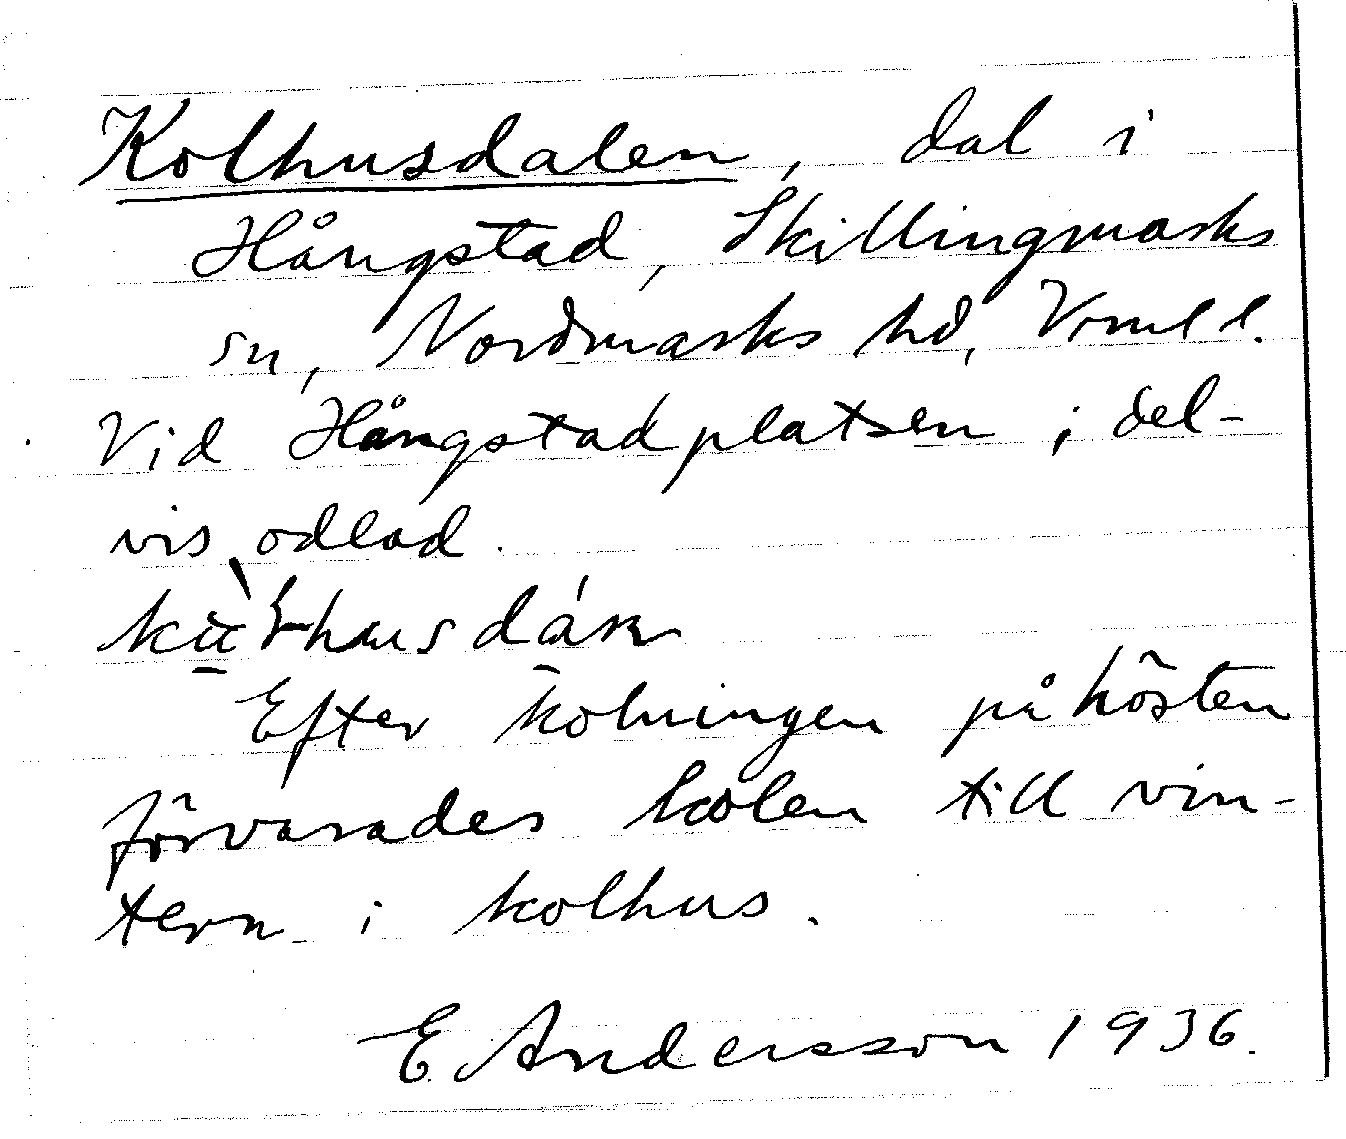 Kolhusdalen, dal i
Hångstad, Skillingmarks
sn, Nordmarks hd, Vrml l.
Vid Hångstadplatsen; del-
vis odlad.
Efter kolningen på hösten
förvarades kolen till vin-
tern i kolhus.
E. Andersson 1936.